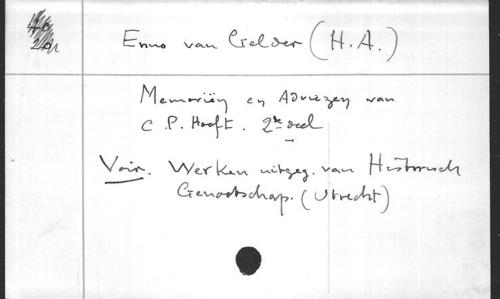 Enno van Gelder (H.A.)
Memoriën en Adviezen van
C.P. Hooft. 2de deel
Voir. Werken uitgeg. van Historisch
Genootschap. (Utrecht)